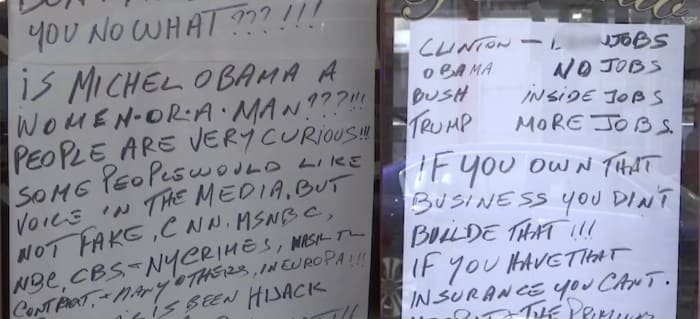 YOU NO WHAT ???!!!
iS MICHEL OBAMA A
WOMEN-OR-A-MAN???!!!
PEOPLE ARE VERY CURIOUS!!!
SOME PEOPLE WOULD LIKE
VOICE IN THE MEDIA, BUT
NOT FAKE, CNN. MSNBC,
NBC, CBS - NYCRIMES,
MANY OTHERS, IN EUROPA!!!
IS BEEN HIJACK
CLINTON - JOBS
OBAMA NO JOBS
BUSH iNSiDE JOBS
TRUMP MORE JOBS.
IF YOU OWN THAT
BUSINESS YOU DIN'T
BUILDE THAT !!!
IF YOU HAVE THAT
INSURANCE YOU CANT.
+ THE